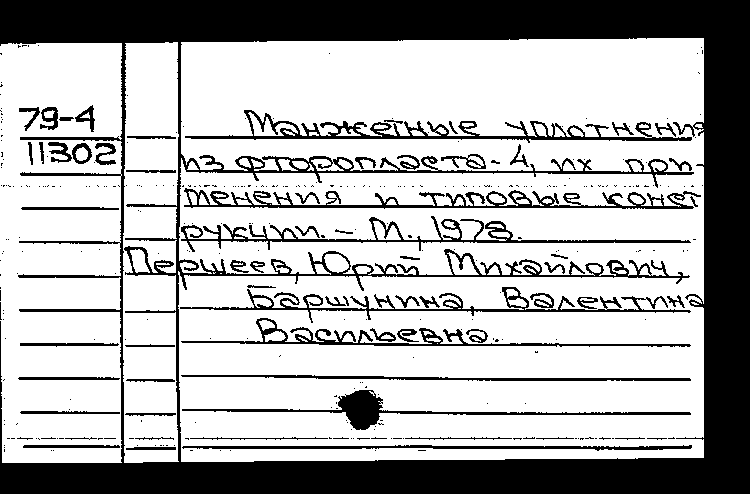 79-4
11302
Манжетные уплотнения
из фторопласта-4, их при-
менения и типовые конст
рукции. - М., 1978.
Першеев, Юрий Михайлович,
Баршунина, Валентина
Васильевна.